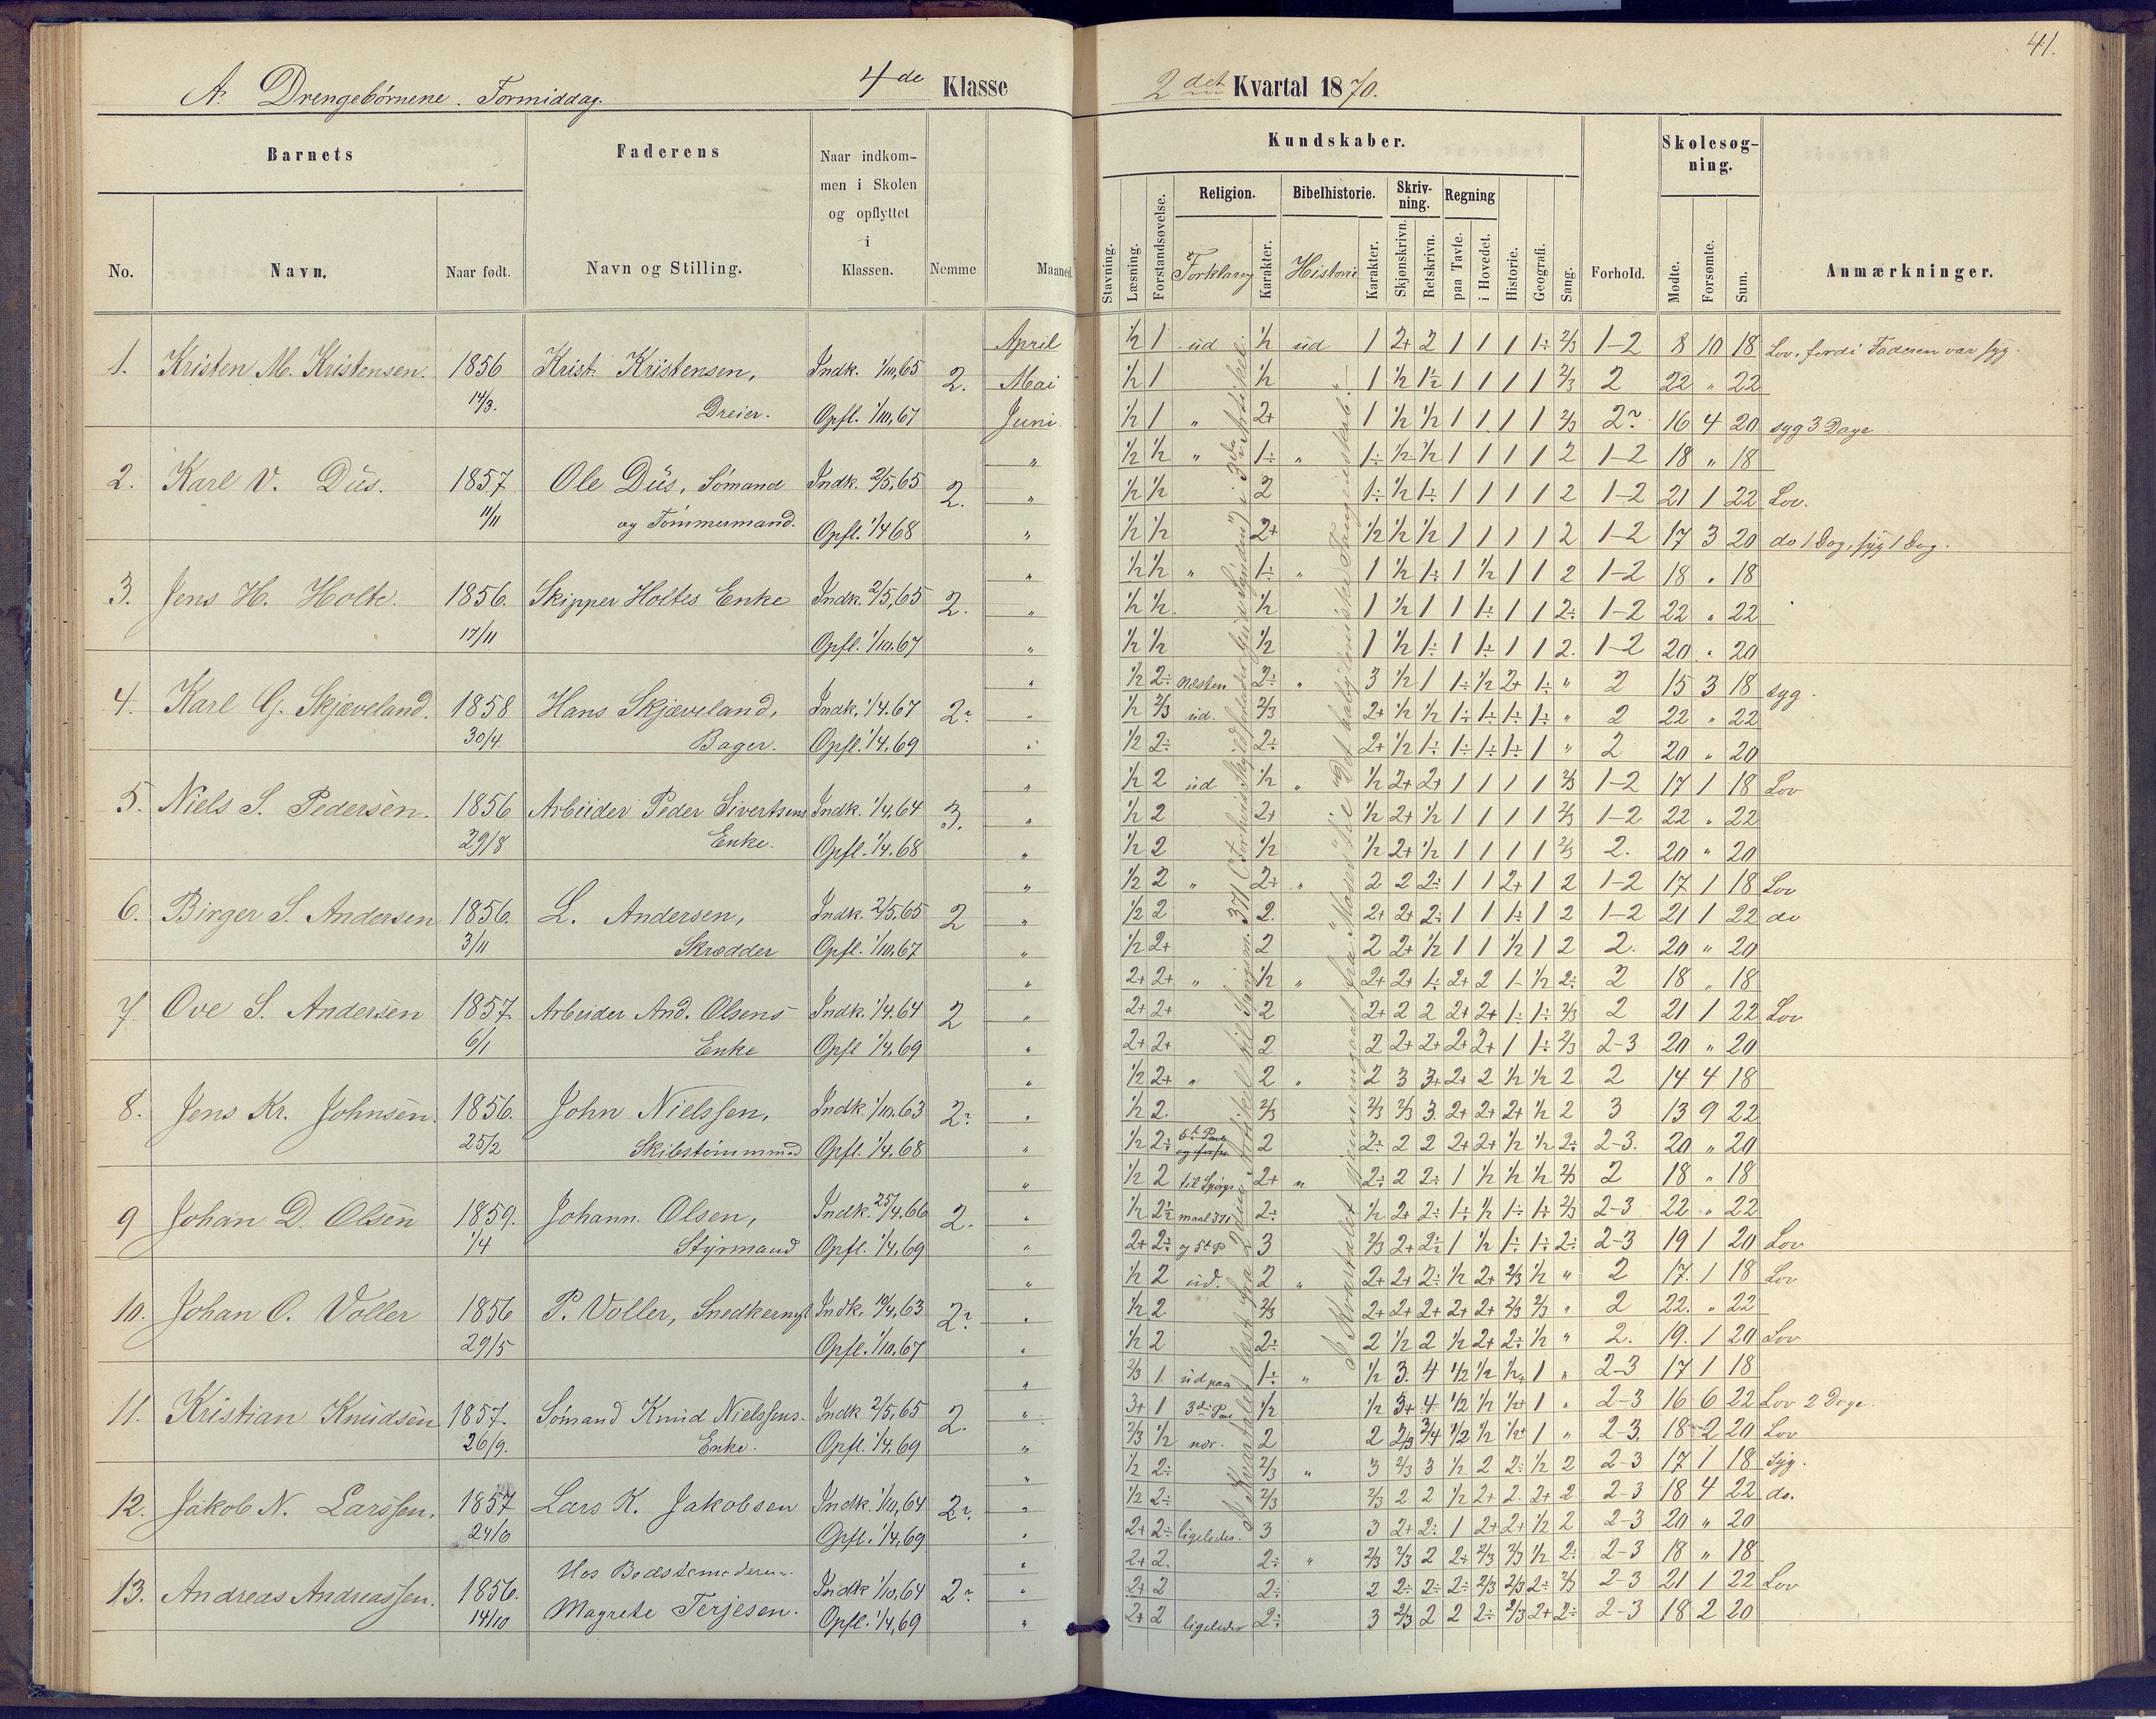 41.
A. Drengebørnene. Formiddag. 4de Klasse
2det Kvartal 1870.
Barnets
Faderens
Naar indkom-
men i Skolen
og opflyttet
i
Klassen.
No.
Navn.
Naar født.
Navn og Stilling.
Nemme
Maaned
Kundskaber.
Skolesøg-
ning.
Religion.
Bibelhistorie.
Skriv-
ning.
Regning
Stavning.
Læsning.
Forstandsøvelse.
Forklaring
Karakter.
Historie
Karakter.
Skjønskrivn.
Retskrivn.
paa Tavle.
i Hovedet.
Historie.
Geografi.
Sang.
Forhold.
Mødte.
Forsømte.
Sum.
Anmærkninger.
1. Kristen M. Kristensen. 1856 Krist. Kristensen, Indk. 1/10,65 2.
14/3. Dreier. Opfl. 1/10,67
April ½ 1 ud ½ ud 1 2+ 2 1 1 1 1÷ 2/3 1-2 8 10 18 Lov, fordi Faderen var syg.
Mai ½ 1 ½ " 1 ½ 1½ 1 1 1 1 2/3 2 22 " 22
Juni ½ 1 " 2+ 1 ½ ½ 1 1 1 1 2/3 2~ 16 4 20 syg 3 Dage
2. Karl V. Düs. 1857 Ole Düs, Sømand Indk. 2/5,65 2.
11/11 og Tømmermand. Opfl. 1/4 68
" ½ ½ " 1÷ " 1÷ ½ ½ 1 1 1 1 2 1-2 18 " 18
" ½ ½ 2 1÷ ½ 1÷ 1 1 1 1 2 1-2 21 1 22 Lov.
" ½ ½ 2+ ½ ½ ½ 1 1 1 1 2 1-2 17 3 20 do 1 Dag, syg 1 Dag.
3. Jens H. Holte. 1856. Skipper Holtes Enke Indk. 2/5,65 2.
17/11 Opfl. 1/10.67
" ½ ½ " 1÷ " 1 ½ 1÷ 1 ½ 1 1 2 1-2 18 " 18
" ½ ½ ½ 1 ½ 1 1 1÷ 1 1 2÷ 1-2 22 " 22
" ½ ½ ½ 1 ½ 1÷ 1 1÷ 1 1 2. 1-2 20 " 20
4. Karl G. Skjæveland. 1858 Hans Skjæveland, Indk. 1/4.67 2~
30/4. Bager. Opfl. 1/4,69
" ½ 2÷ næsten 2÷ " 3 ½ 1 1÷ ½ 2+ 1÷ " 2 15 3 18 syg.
" ½ 2/3 ud. 2/3 2+ ½ ½ 1÷ 1÷ 1÷ 1÷ " 2 22 " 22
" ½ 2÷ 2÷ 2+ ½ 1÷ 1÷ 1÷ 1÷ 1 " 2 20 " 20
5. Niels S. Pedersen. 1856 Arbeider Peder Sivertsens Indk. 1/4,64 3.
29/8 Enke. Opfl. 1/4.68
" ½ 2 ud ½ " ½ 2+ 2+ 1 1 1 1 2/3 1-2 17 1 18 Lov
" ½ 2 2+ ½ 2+ ½ 1 1 1 1 2/3 1-2 22 " 22
" ½ 2 ½ ½ 2+ ½ 1 1 1 1 2/3 2. 20 " 20
6. Birger S. Andersen 1856. L. Andersen, Indk. 2/5.65 2
3/11 Skrædder Opfl. 1/10,67
" ½ 2 " 2+ " 2 2 2÷ 1 1 2+ 1 2 1-2 17 1 18 Lov
" ½ 2 2. 2+ 2+ 2÷ 1 1 1÷ 1 2 1-2 21 1 22 do
" ½ 2+ 2 2 2+ ½ 1 1 ½ 1 2 2. 20 " 20
7. Ove S. Andersen 1857. Arbeider And. Olsens Indk. 1/4.64 2
6/1 Enke Opfl 1/4,69
" 2+ 2+ " ½ " 2+ 2+ 1÷ 2+ 2 1- ½ 2÷ 2 18 " 18
" 2+ 2+ 2 2+ 2 2 2+ 2+ 1÷ 1÷ 2/3 2 21 1 22 Lov
" 2+ 2+ 2 2 2+ 2+ 2+ 2+ 1 1÷ 2/3 2-3 20 " 20
8. Jens Kr. Johnsen. 1856. John Nielssen, Indk 1/10.63 2~
25/2 Skibstømmmd Opfl. 1/4.68
" ½ 2+ " 2 " 2 3 3+ 2+ 2 ½ ½ 2 2 14 4 18
" ½ 2. 2/3 2/3 2/3 3. 2+ 2+ 2+ ½ 2 3 13 9 22
" ½ 2÷ 2 2÷ 2 2 2+ 2+ ½ ½ 2÷ 2-3. 20 " 20
9 Johan D. Olsen 1859. Johann. Olsen, Indk. 25/4.66 2.
1/4 Styrmand Opfl. 1/4,69
" ½ 2 til Spørgs- 2+ " 2÷ 2 2÷ 1 ½ ½ ½ 2/3 2 18 " 18
" ½ 2½ maal 371 2÷ ½ 2+ 2÷ 1÷ ½ 1÷ 1÷ 2/3 2-3 22 " 22
" 2+ 2÷ og 5te P 3 2/3 2+ 2½ 1 ½ 1÷ 1÷ 2÷ 2-3 19 1 20 Lov
10. Johan O. Voller 1856 P. Voller, Snedkermst Indk. 19/4,63 2~
29/5 Opfl. 1/10,67
" ½ 2 ud. 2 " 2+ 2+ 2÷ ½ 2+ 2/3 ½ " 2 17. 1 18 Lov
" ½ 2 2/3 2+ 2+ 2+ 2+ 2+ 2/3 2/3 " 2 22. " 22
" ½ 2 2÷ 2 ½ 2 ½ 2+ 2÷ ½ " 2. 19. 1 20 Lov
11. Kristian Knudsen 1857. Sømand Knud Nielssens Indk 2/5,65 2.
26/9. Enke. Opfl. 1/4.69
" 2/3 1. ud paa 1÷ " ½ 3. 4 ½ ½ ½+ 1 " 2-3 17 1 18
" 3+ 1 3die Par ½ ½ 3+ 4 ½ ½ ½+ 1 " 2-3 16 6 22 Lov 2 Dage.
" 2/3 ½ nær. 2 2 2/3 3/4 ½ ½ ½+ 1 " 2-3. 18 2 20 Lov
12. Jakob N. Larssen. 1857 Lars K. Jakobsen Indk 1/10,64 2~
24/10 Opfl. 1/4,69
" ½ 2÷ 2/3 " 3 2/3 3 ½ 2 2÷ ½ 2 2-3 17 1 18 Syg.
" ½ 2÷ 2/3 2/3 2 2 ½ 2+ 2. 2+ 2 2-3 18 4 22 do.
" 2+ 2÷ ligeledes. 3 3 2+ 2÷ 1 2+ 2+ ½ 2 2-3 20 " 20
13. Andreas Andreassen. 1856. Hos Bedstemoderen Indk 1/10,64 2~
14/10 Magrete Terjesen. Opfl. 1/4,69
" 2+ 2. 2÷ " 2/3 2/3 2 2÷ 2/3 2/3 ½ 2÷ 2-3 18 " 18
" 2+ 2 2÷ 2 2÷ 2÷ 2÷ 2/3 2/3 2÷ 2/3 2-3 21 1 22 Lov
" 2+ 2 ligeledes 2÷ 3 2/3 2 2 2÷ 2/3 2+ 2÷ 2-3 18 2 20
I Kvartalet læst fra 2den Artikel til Spørgsm. 371 i 3die Artikel.
I Kvartalet gjennemgaaet fra Moses til det babyloniske Fangenskab.